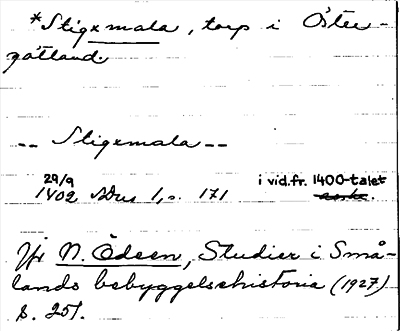 *Stigxmala, torp i Öster-
götland.
-- Stigxmala --
29/9
1402 SDns 1, s. 171
i vid.fr. 1400-talet
Jfr N. Ödeen, Studier i Små-
lands bebyggelsehistoria (1927)
s. 251.